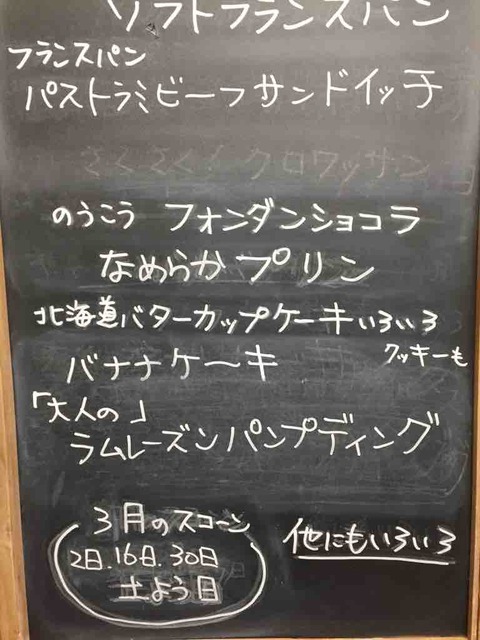 ソフトフランスパン
フランスパン
パストラミビーフサンドイッチ
さくさく！クロワッサン
のうこう フォンダンショコラ
なめらかプリン
北海道バターカップケーキいろいろ
クッキーも
バナナケーキ
「大人の」
ラムレーズンパンプディング
3月のスコーン
2日.16日.30日
土よう日
他にもいろいろ